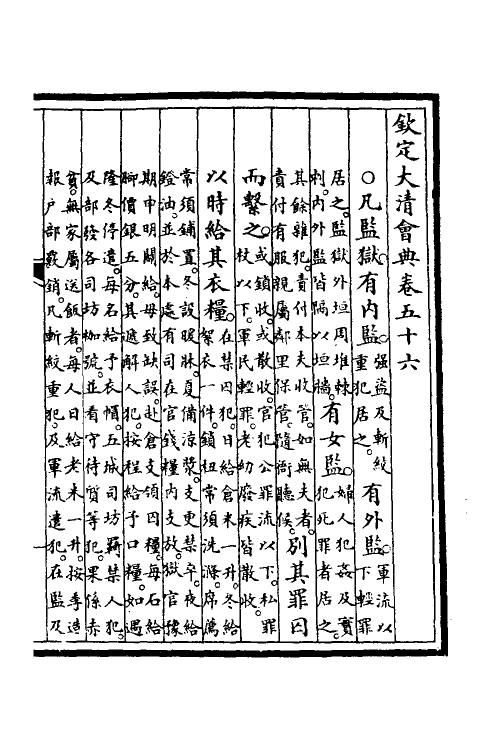 欽定大清會典卷五十六
○凡監獄有內監強盜及斬絞重犯居之有外監軍流以下輕罪
居之監獄外垣周堆棘刺內外監皆隔以垣牆有女監婦人犯姦及實犯死罪者居之
其餘雜犯責付本夫收管如無夫者責付有服親屬鄰里保管隨衙聽候別其罪囚
而繫之或鎖收或散收官犯公罪流以下私罪杖以下軍民輕罪老幼廢疾皆散收
以時給其衣糧在禁囚犯日給倉米一升冬給絮衣一件鎖杻常須洗滌席薦
常須鋪置冬設暖牀夏備涼漿支更禁卒夜給鐙油並於本處有司在官錢糧內支放獄官豫
期申明關給毋致缺誤赴倉支領囚糧每石給腳價銀五分其遞解人犯按程給予口糧如遇
隆冬停遣每名給予衣帽五城司坊羈禁人犯及部發各司坊枷號並看守待質等犯果係赤
貧無家屬送飯者每人日給老米一升按季造報戶部覈銷凡斬絞重犯及軍流遣犯在監及